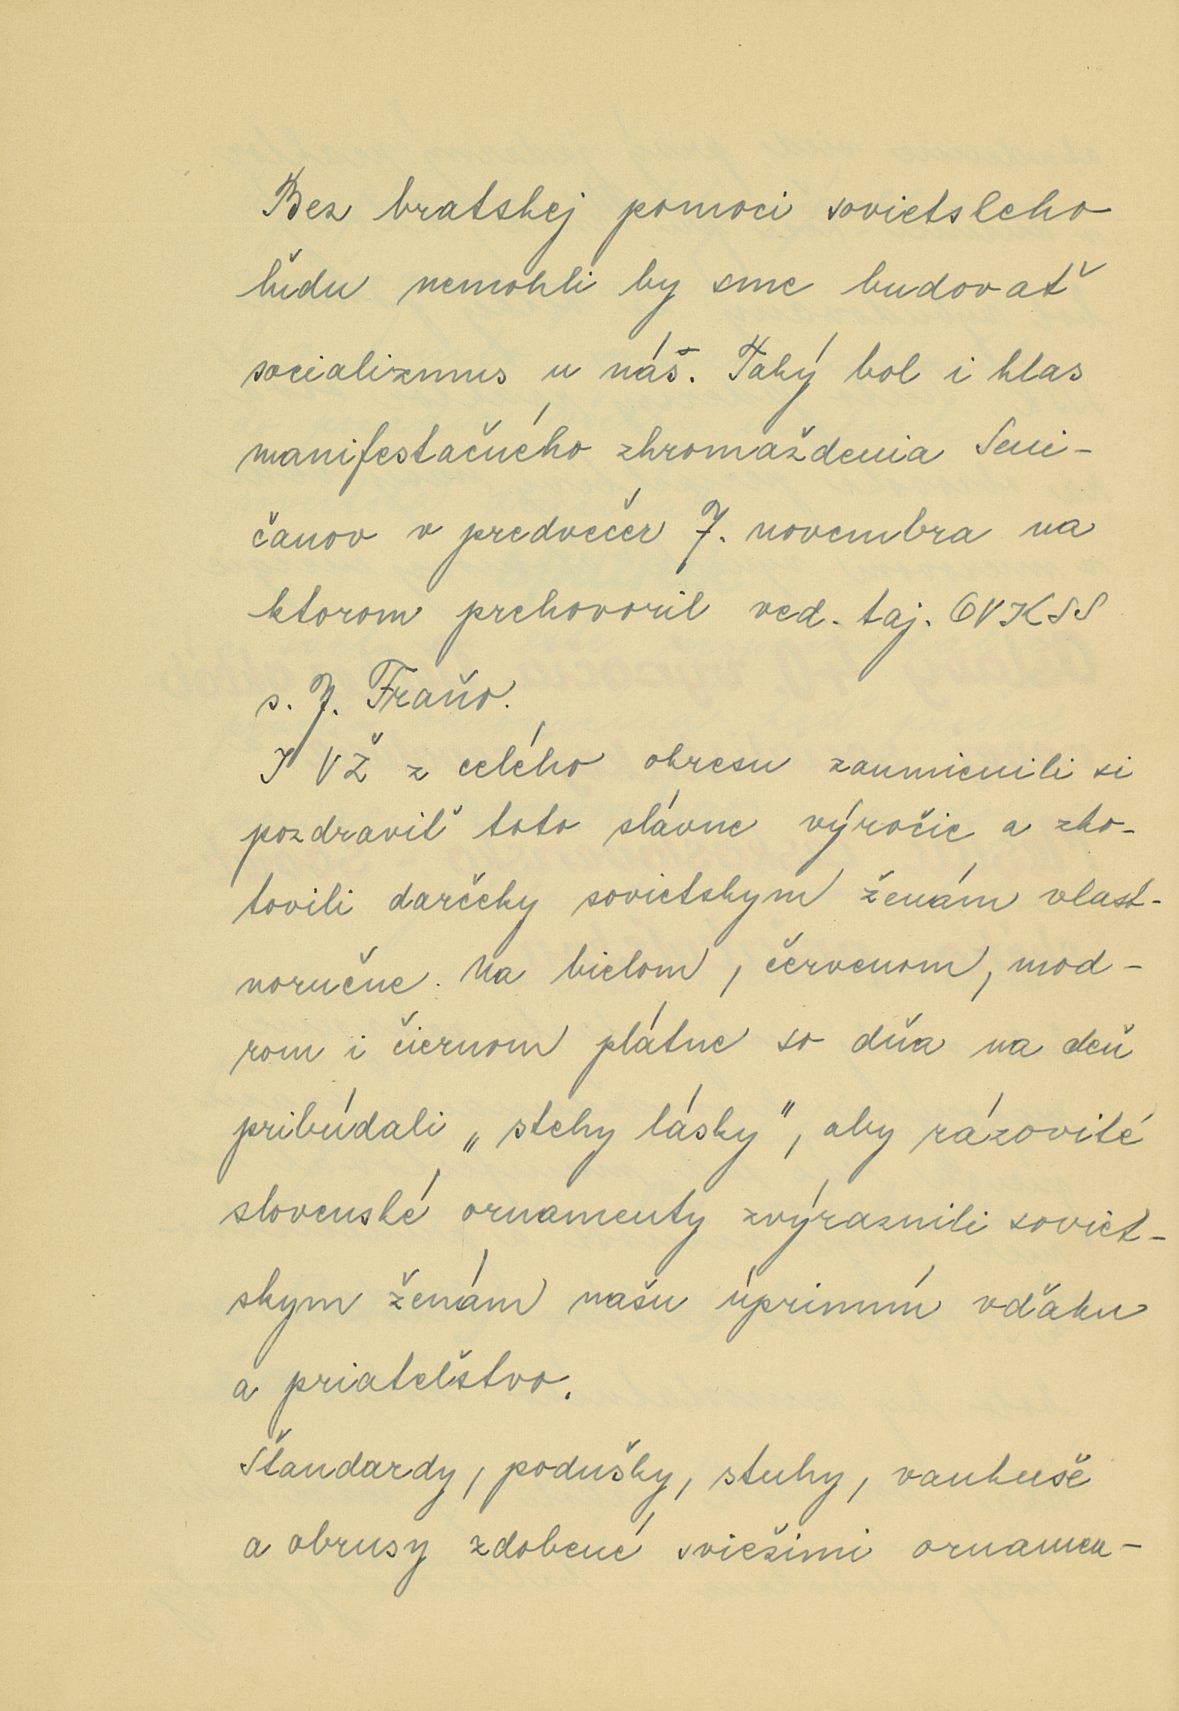 Bez bratskej pomoci sovietskeho
ľudu nemohli by sme budovať
socializmus u náš. Taký bol i hlas
manifestačného zhromaždenia Seni-
čanov v predvečer 7. novembra na
ktorom prehovoril ved. taj. OVKSS
s. J. Fraňo.
I VŽ z celého okresu zaumienili si
pozdraviť toto slávne výročie a zho-
tovili darčeky sovietskym ženám vlast-
noručne. Na bielom, červenom, mod-
rom i čiernom plátne so dňa na deň
pribúdali „stehy lásky", aby rázovité
slovenské ornamenty zvýraznili soviet-
skym ženám našu úprimnú vďaku
a priateľstvo.
Štandardy, podušky, stuhy, vankuše
a obrusy zdobené sviežimi ornamen-